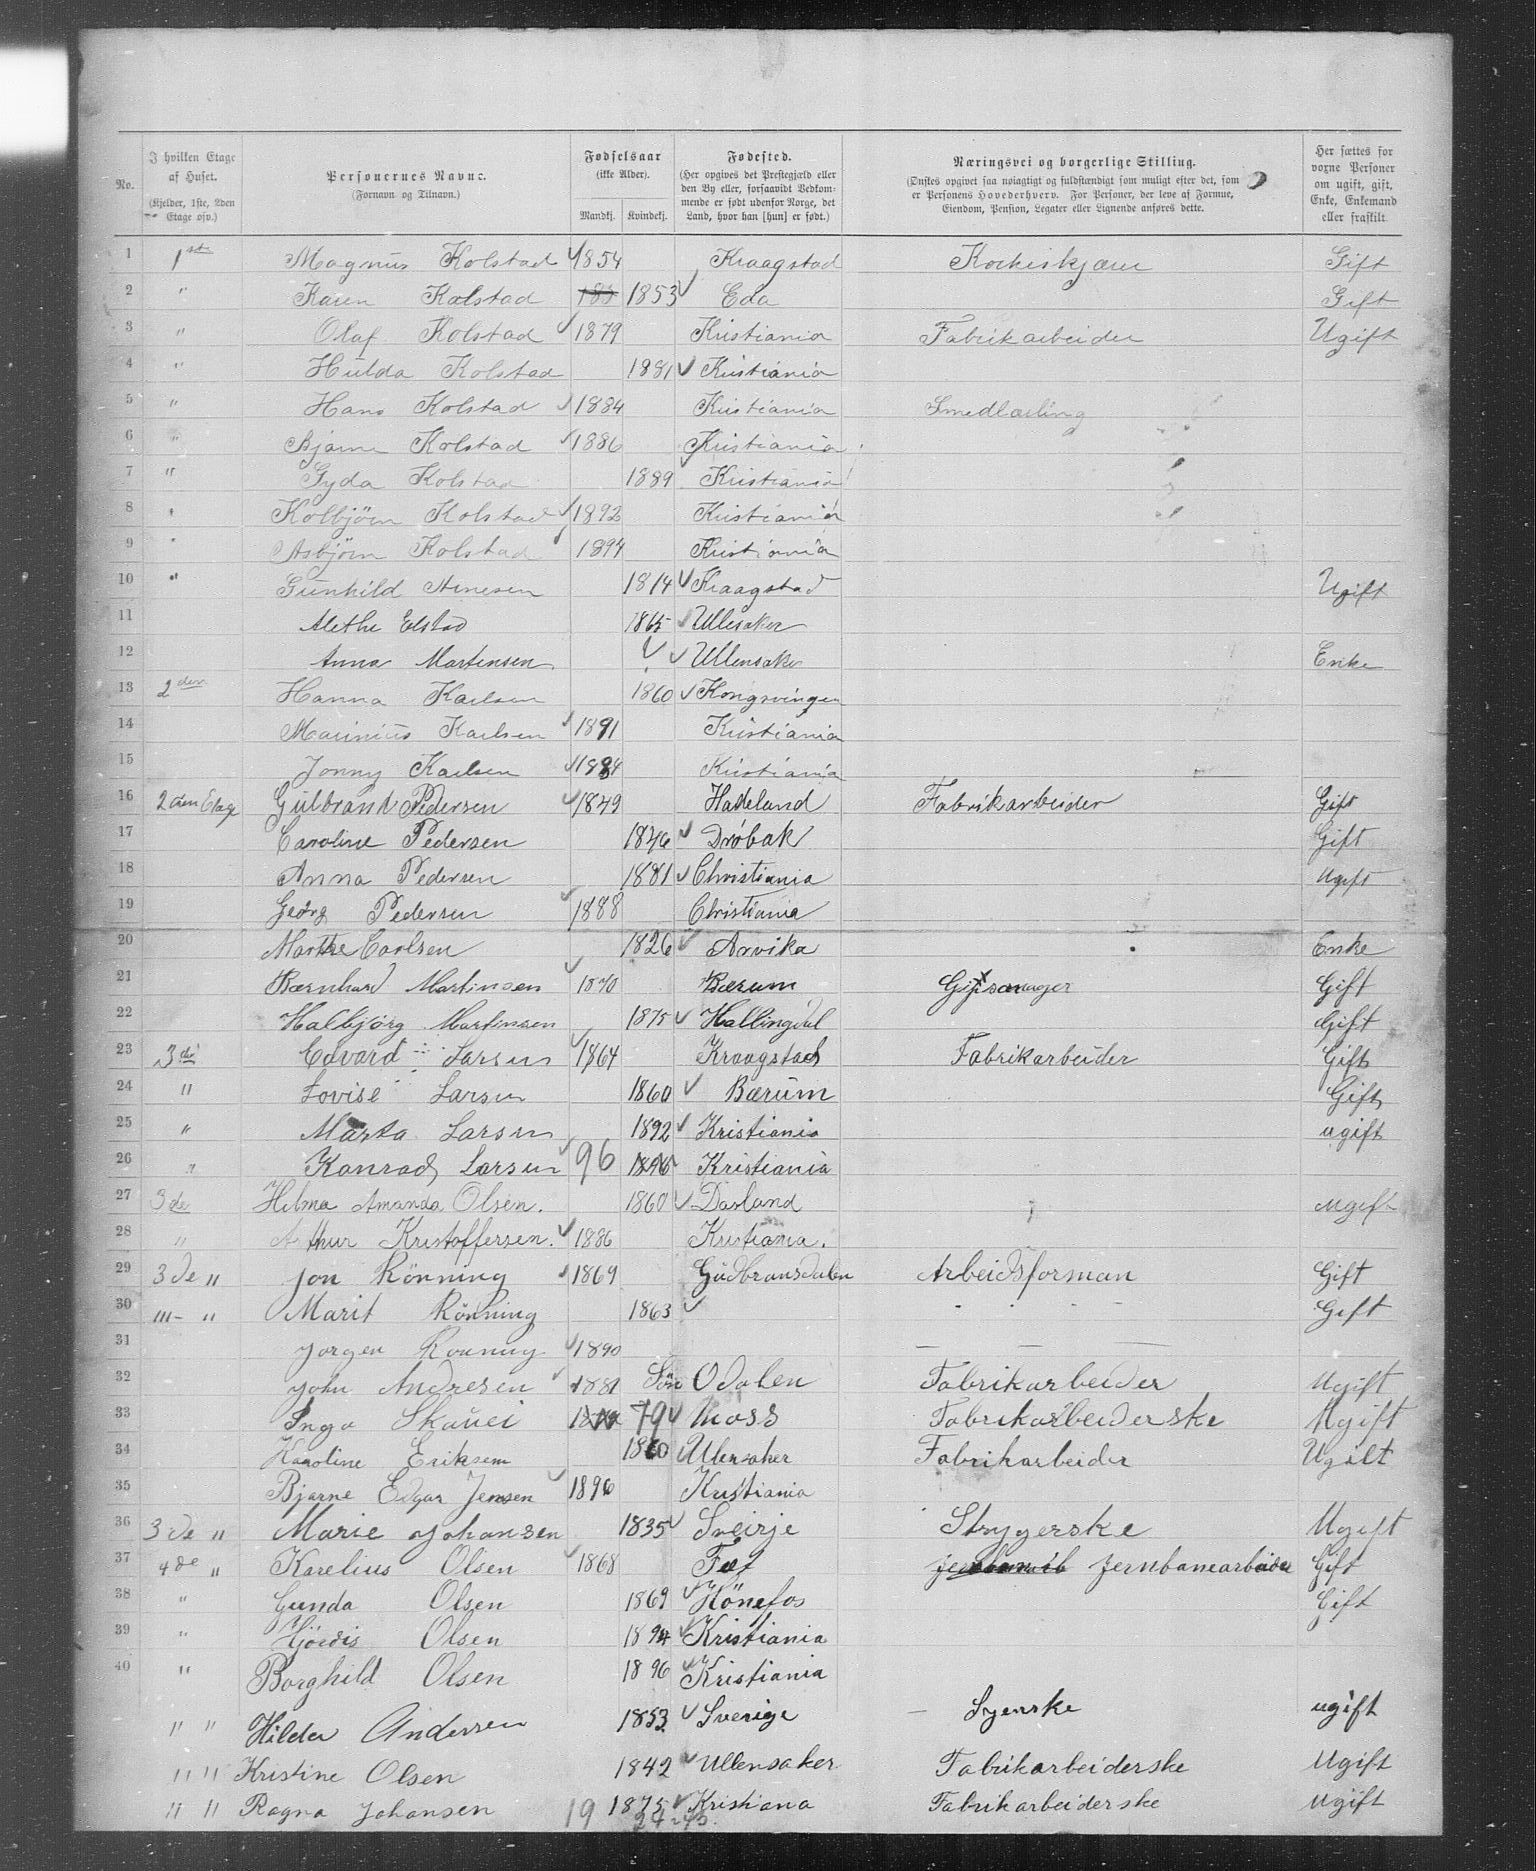 No. | I hvilken Etage af Huset. (Kjelder, 1ste, 2den Etage osv.) | Personernes Navne. (Fornavn og Tilnavn.) | Fødselsaar (ikke Alder). Mandkj. Kvindekj. | Fødested. (Her opgives det Præstegjæld eller den By eller, forsaavidt Vedkommende er født udenfor Norge, det Land, hvor han [hun] er født.) | Næringsvei og borgerlige Stilling. (Ønskes opgivet saa nøiagtigt og fuldstændigt som muligt efter det, som er Personens Hovederhverv. For Personer, der leve af Formue, Eiendom, Pension, Legater eller Lignende anføres dette. | Her sættes for voxne Personer om ugift, gift, Enke, Enkemand eller fraskilt.
1 1ste Magnus Kolstad 1854 Kraagstad Gift
2 " Karen Kolstad 185 1853 Eda Gift
3 " Olaf Kolstad 1879 Kristiania Fabrikarbeider Ugift
4 " Hulda Kolstad 1881 Kristiania
5 " Hans Kolstad 1884 Kristiania Smedlærling
6 " Bjarne Kolstad 1886 Kristiania
7 " Gyda Kolstad 1889 Kristiania
8 " Kolbjörn Kolstad 1892 Kristiania
9 " Asbjörn Kolstad 1894 Kristiania
10 " Gunhild Arnesen 1814 Kraagstad Ugift
11 Alethe Elstad 1865 Ullesaker
12 Anna Martensen Ullensaker Enke
13 2den Hanna Karlsen 1860 Kongsvingen
14 Marinius Karlsen 1891 Kristiania
15 Jonny Karlsen Kristiania
16 2den Etage Gulbrand Pedersen 1849 Hadeland Fabrikarbeider Gift
17 Caroline Pedersen 1846 Dröbak Gift
18 Anna Pedersen 1881 Christiania Ugift
19 Georg Pedersen 1888 Christiania
20 Marthe Carlsen 1826 Arvika Enke
21 Bærnhard Martinsen 1870 Bærum Gipsmager Gift
22 Halbjörg Martinsen 1875 Hallingdal Gift
23 3di Edvard Larsen 1864 Kraagstad Fabrikarbeider Gift
24 " Lovise Larsen 1860 Bærum Gift
25 " Marta Larsen 1892 Kristiania ugift
26 " Konrad Larsen 96 1896 Kristiania
27 3de Hilma Amanda Olsen. 1860 Dasland ugift
28 " Arthur Kristoffersen. 1886 Kristiania.
29 3de " Jon Rönning 1869 Gudbransdalen Arbeidsforman Gift
30 " Marit Rönning 1863 Gift
31 Jorgen Rönning 1890
32 John Andresen 1881 Sön Odalen Fabrikarbeider Ugift
33 Inga 79 Moss Fabrikarbeiderske Ugift
34 Karoline Eriksen 1860 Ulensaker Fabrikarbeider Ugift
35 Bjarne Edgar Jensen 1896 Kristiania
36 3de " Marie Johansen 1835 Sveirje Strygerske Ugift
37 4de " Karelius Olsen 1868 Fet Jernbanearbeider Gift
38 " Gunda Olsen 1869 Hönefos Gift
39 " Hjördis Olsen 1894 Kristiania
40 " Borghild Olsen 1896 Kristiania
" " Hilder Andersen 1853 Sverige Syerske ugift
" " Kristine Olsen 1842 Ullensaker Fabrikarbeiderske Ugift
" " Ragna Johansen 1875 Kristiana Fabrikarbeiderske Ugift
19 24